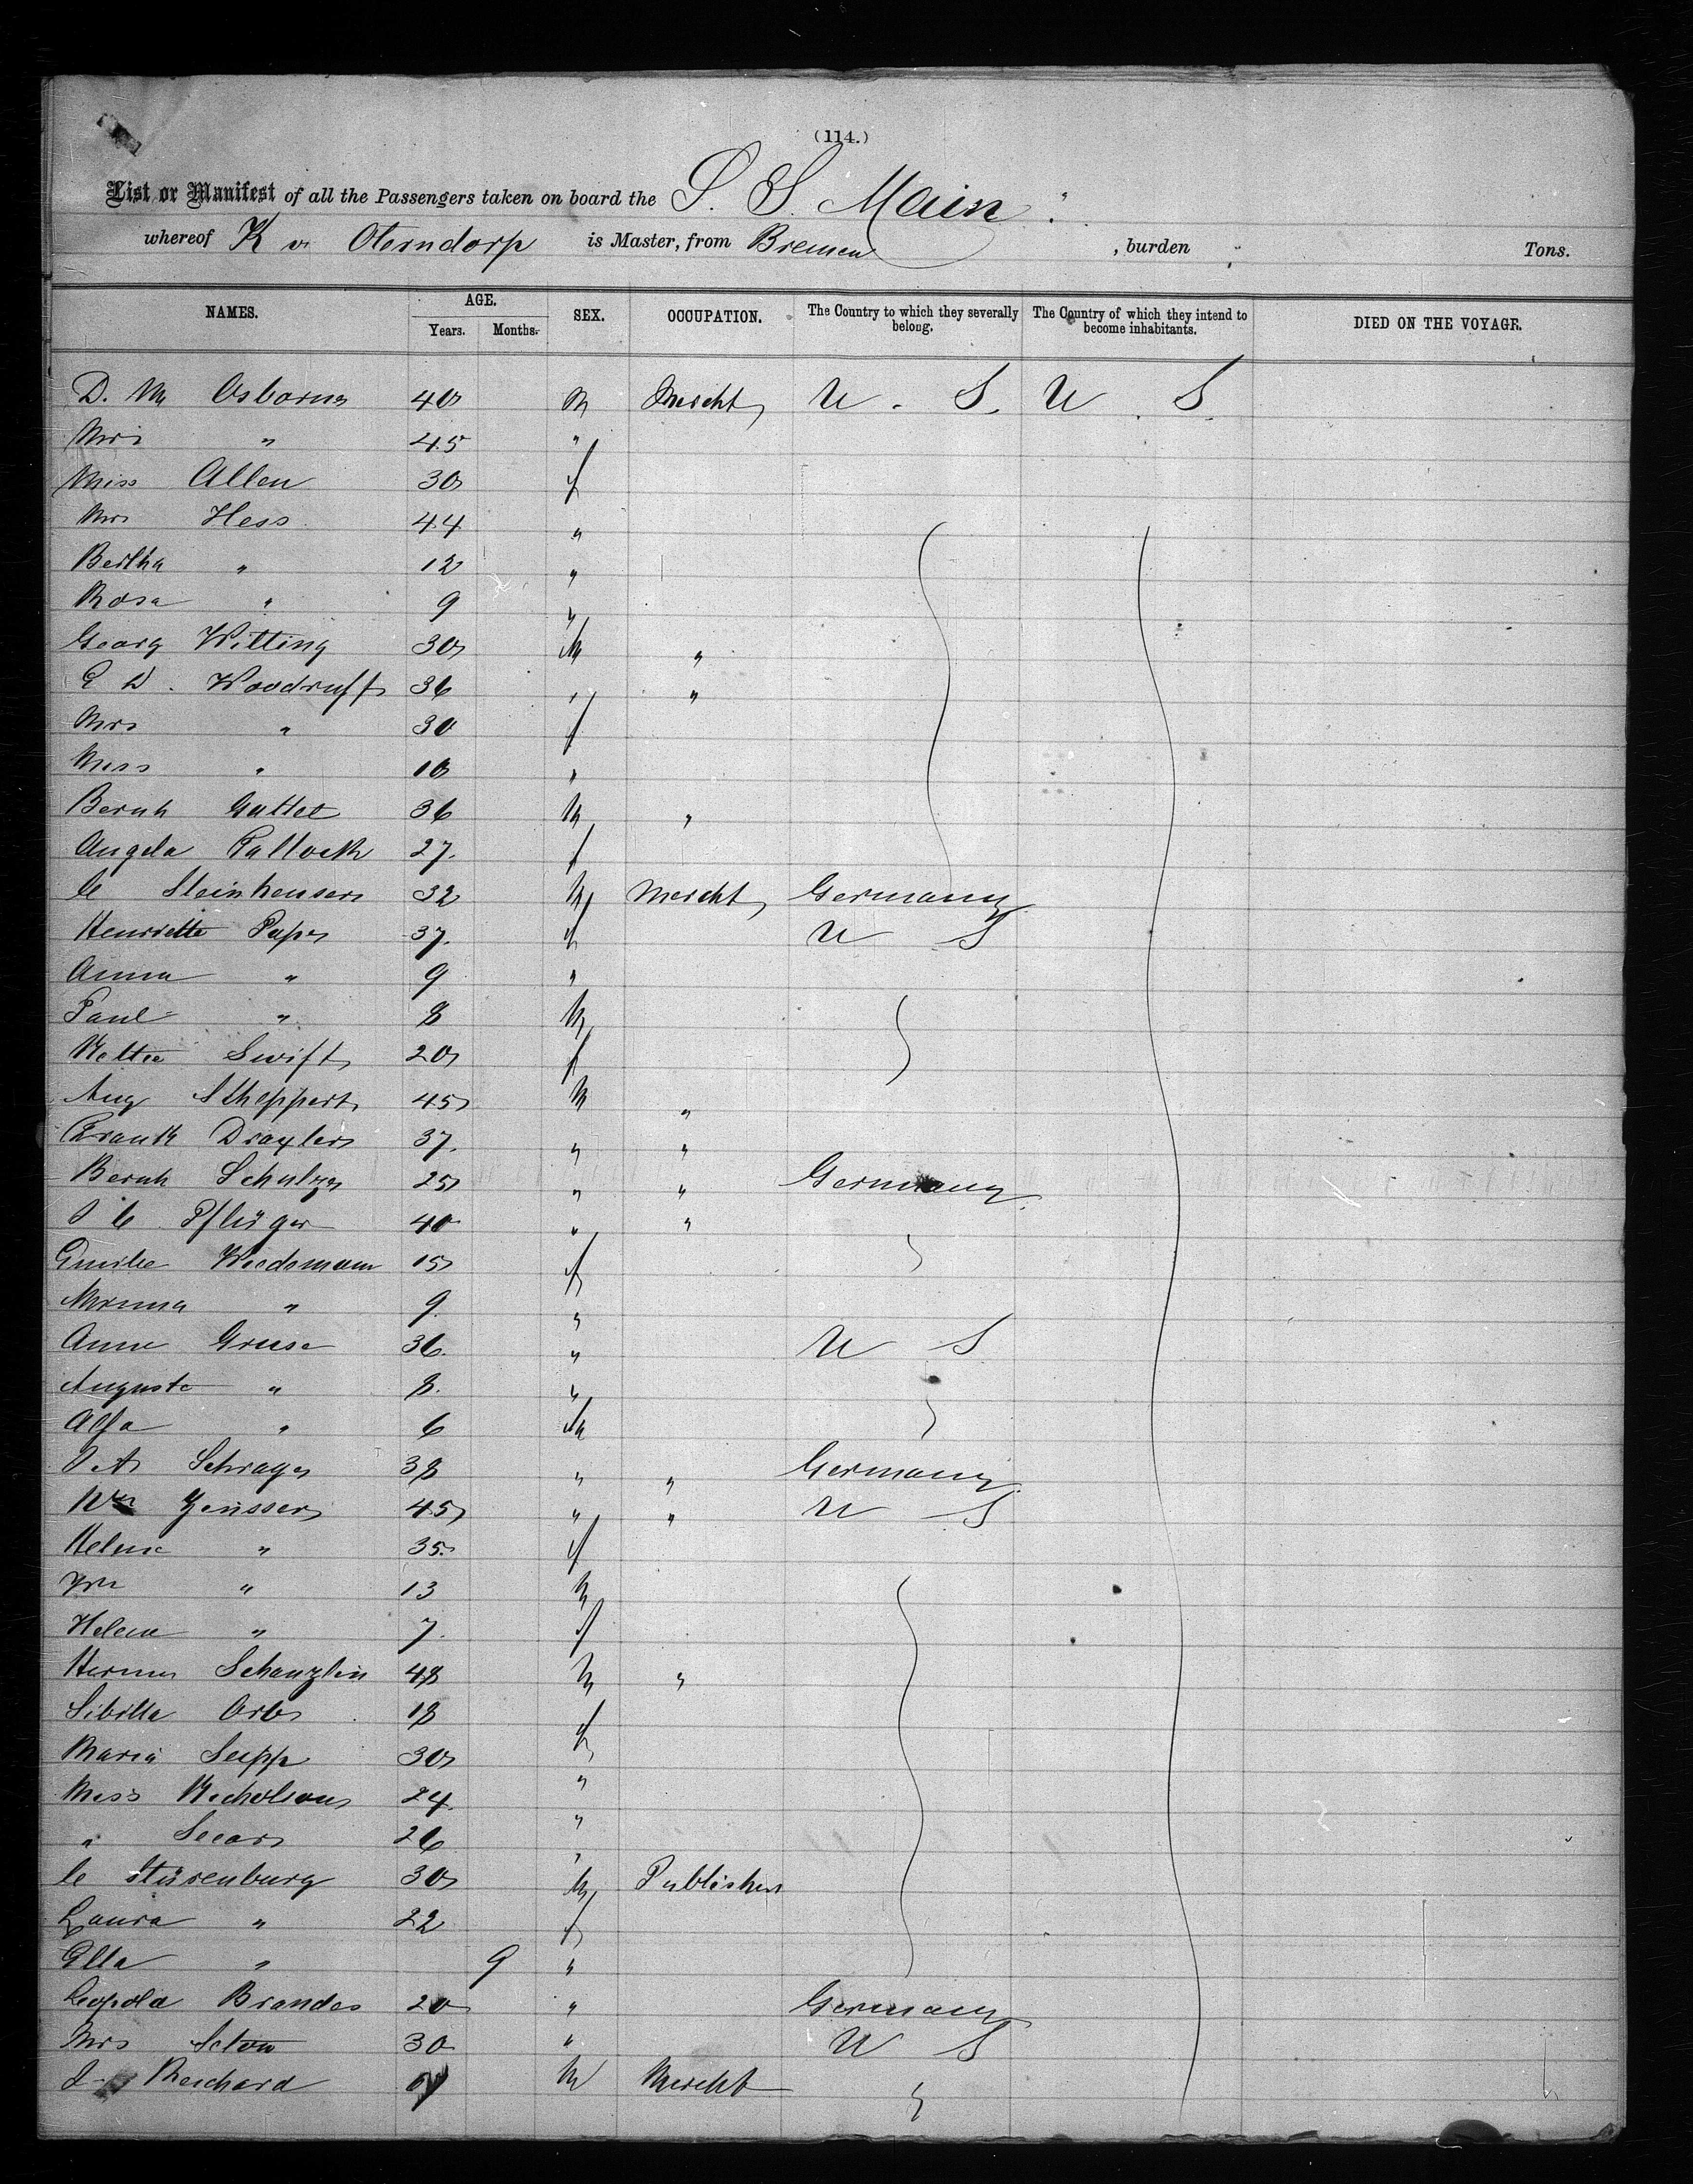 (114.)
List or Manifest of all the Passengers taken on board the S. S. Main
whereof K v Oterndorp is Master, from Bremen , burden Tons.
NAMES. AGE. Years. Months. SEX. OCCUPATION. The Country to which they severally belong. The Country of which they intend to become inhabitants. DIED ON THE VOYAGE.
D. M Osborne 40 M Mercht U. S. U. S.
Mrs " 45 "
Miss Allen 30 f
Mrs Hess 44 "
Bertha " 12 "
Rosa " 9 "
Georg Witting 30 M "
E D. Woodruff 36 " "
Mrs " 30 f
Miss " 10 "
Bernh Guttet 36 M "
Angela Pallock 27. f
C Steinheuser 32 M Mercht Germany
Henriette Pape 37. f U S
Anna " 9 "
Paul " 8 M
Nettie Swift 20 f
Aug Stheppert 45 M "
Frank Draxler 37. " "
Bernh Schulze 25 " " Germany
C Pflüger 40 " "
Emilie Wiedemann 15 f
Minna " 9. "
Anna Gruse 36. " U S
Auguste " 8. "
" 6 M
Schrage 38 " " Germany
Wm 45 " " U S
Helene " 35. f
Wm " 13 M
Helene " 7. f
Herman Schanzlin 48 M "
Sibilla Orb 18 f
Maria Supp 30 "
Miss Nicholson 24. "
" Sears 26 "
C Stürenburg 30 M Publisher
Laura " 22 f
Ella " 9 "
Leopold Brandes 20 " Germany
Mrs Seton 30 " U S
Reichard M Mercht